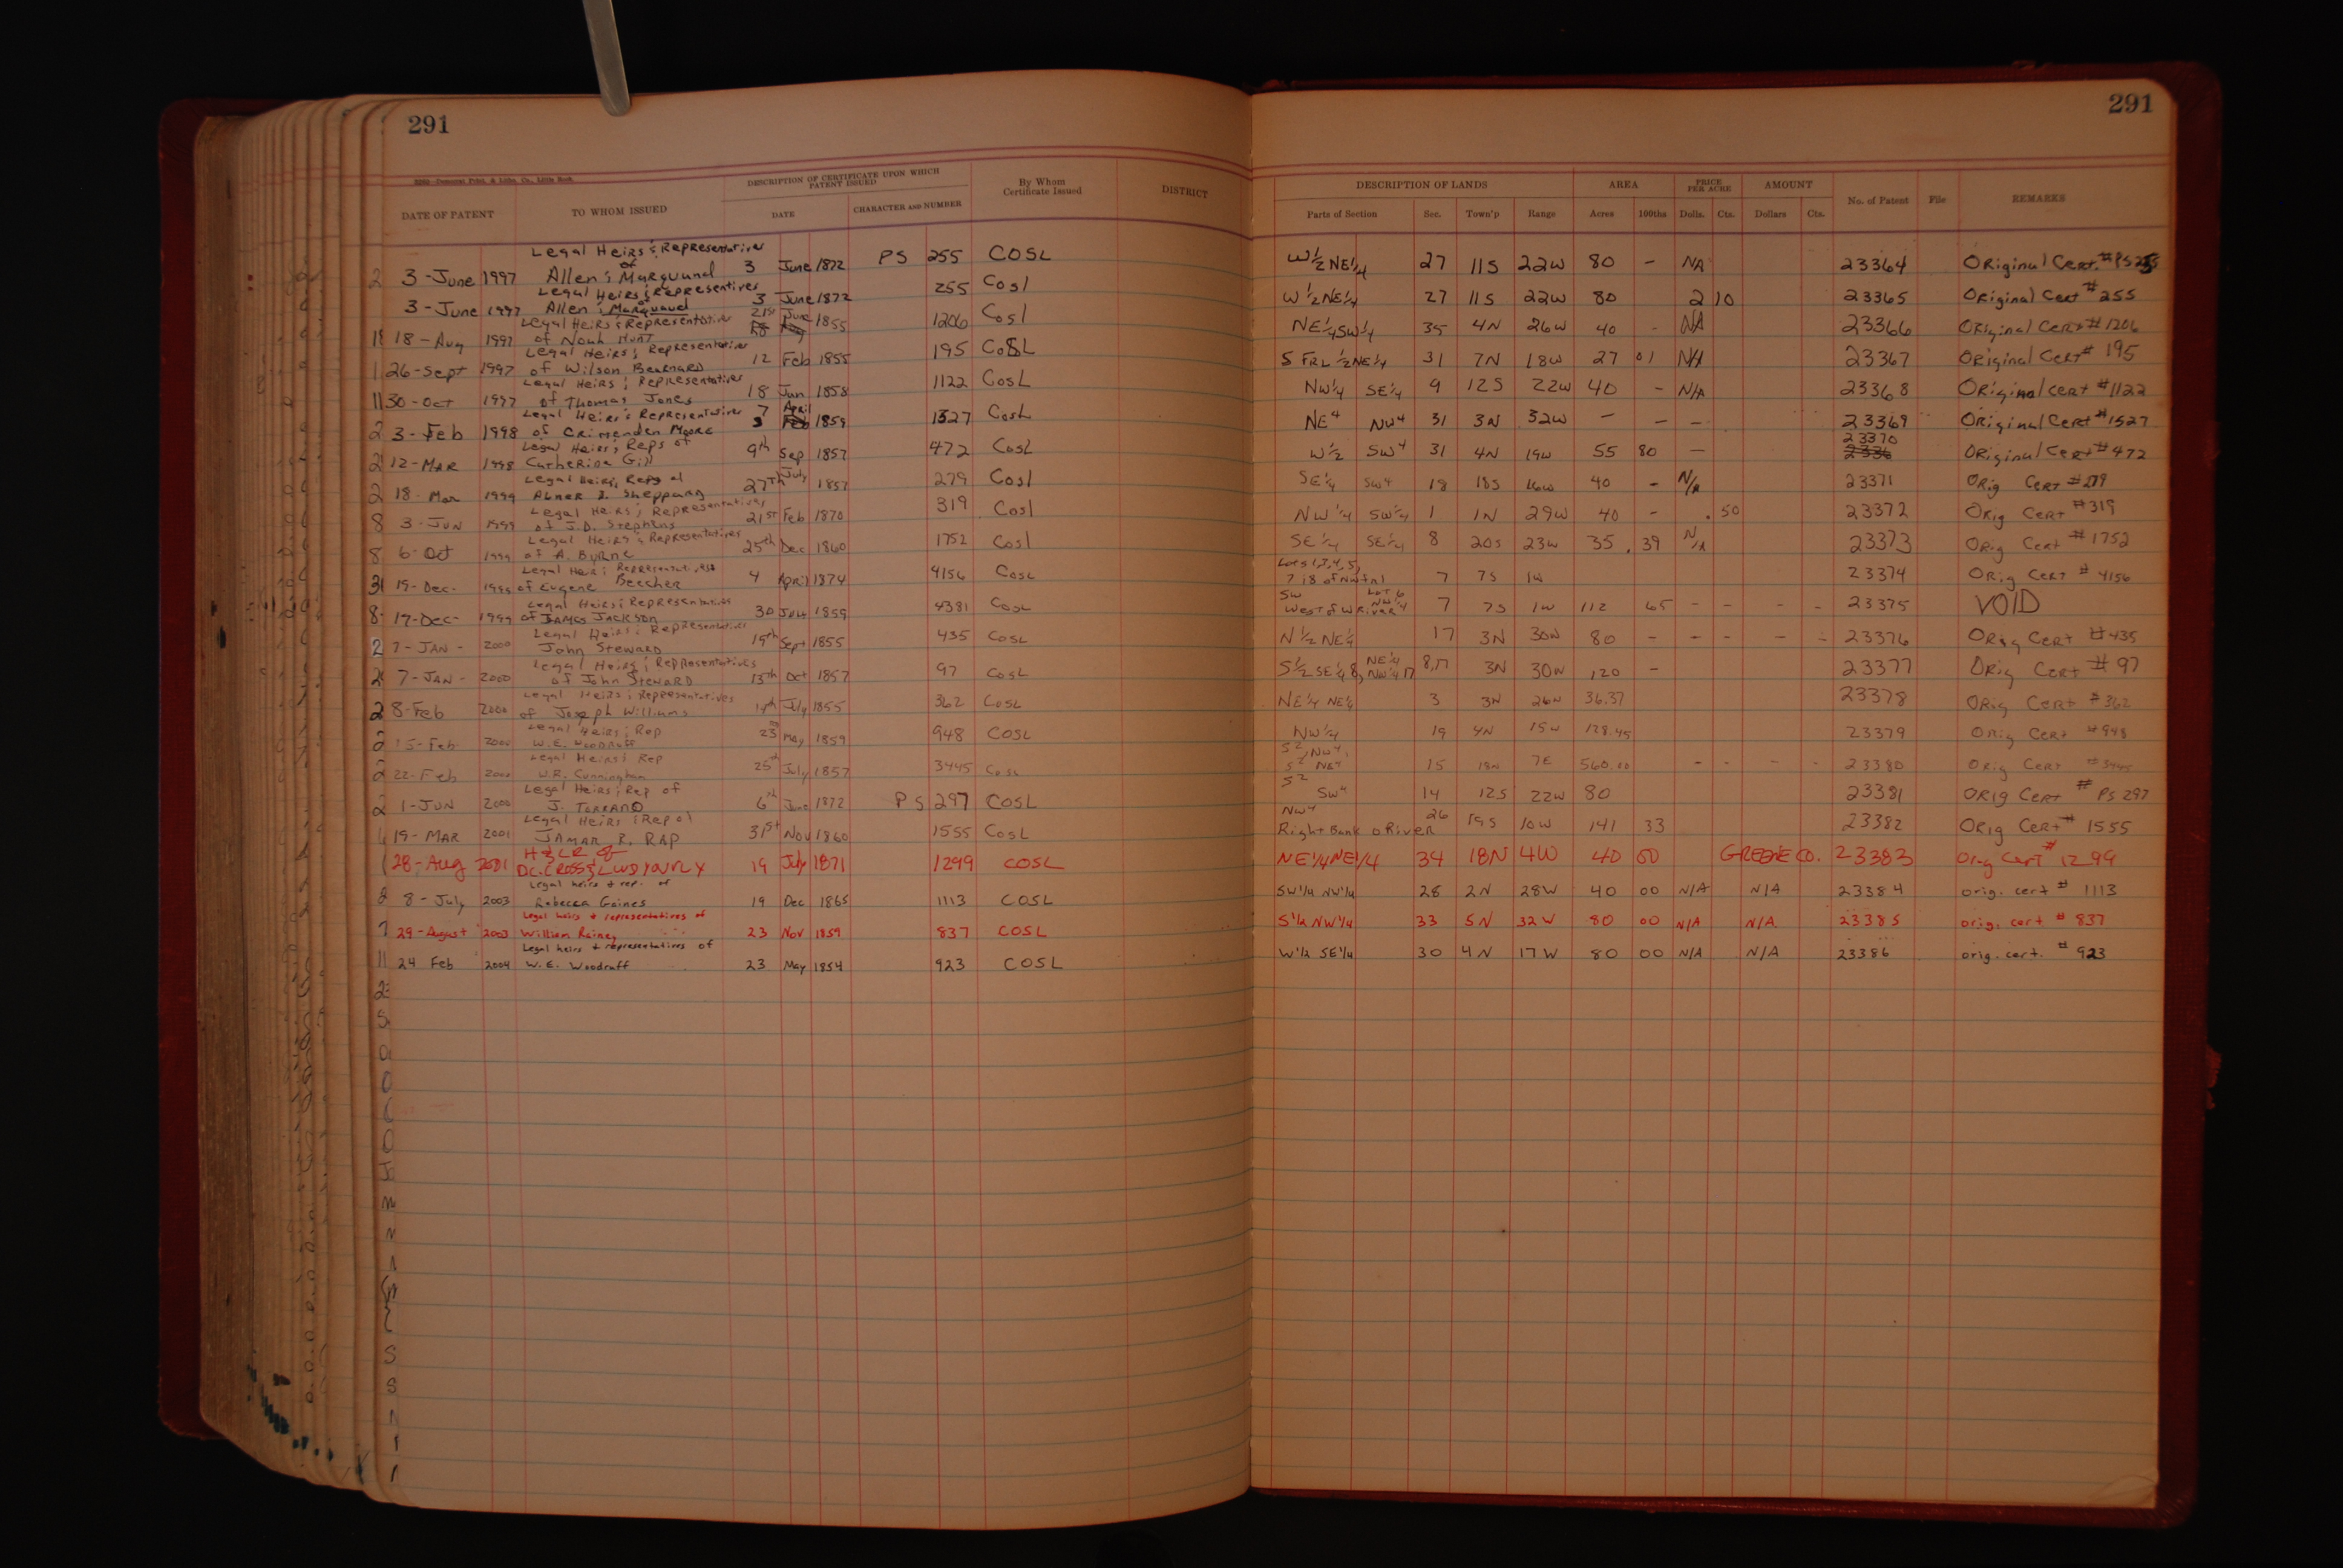 291
291
DESCRIPTION OF CERTIFICATE UPON WHICH PATENT ISSUED
By Whom Certificate Issued
DISTRICT
DESCRIPTION OF LANDS
AREA
PRICE PER ACRE
AMOUNT
No. of Patent
File
REMARKS
DATE OF PATENT
TO WHOM ISSUED
DATE
CHARACTER AND NUMBER
Parts of Section
Sec.
Town'p
Range
Acres
100ths
Dolls.
Cts.
Dollars
Cts.
Legal Heirs & Representatives of
3-June 1997 Allen & Marquand 3 June 1872 PS 255 COSL W½ NE¼ 27 11S 22W 80 - NA 23364 Original Cert. #PS255
Legal Heirs & Representatives of
3-June 1997 Allen & Marquand 3 June 1872 255 Cosl W½NE¼ 27 11S 22W 80 2 10 23365 Original Cert #255
Legal Heirs & Representative
18-Aug 1997 of Noah Hunt 21st June 1855 1206 Cosl NE¼SW¼ 35 4N 26W 40 - NA 23366 Original Cert #1206
Legal Heirs & Representatives
26-Sept 1997 of Wilson Bearnard 12 Feb 1855 195 COSL S FRL ½NE¼ 31 7N 18W 27 01 N/A 23367 Original Cert# 195
Legal Heirs & Representatives
30-Oct 1997 of Thomas Jones 18 Jun 1858 1122 CosL NW¼ SE¼ 9 12S 22W 40 - N/A 23368 Original cert #1122
Legal Heirs & Representatives
3-Feb 1998 of Crimenden Moore 7 April 1859 1327 CosL NE4 NW4 31 3N 32W - - - 23369 Original Cert #1527
Legal Heirs & Reps of
12-MAR 1998 Catherine Gill 9th Sep 1857 472 CosL W½ SW4 31 4N 19W 55 80 - 23370 Original Cert #472
Legal Heirs, Reps of
18-Mar 1999 Abner D. Sheppard 27th July 1857 279 Cosl SE¼ SW4 18 18S 16W 40 - N/A 23371 Orig Cert #279
Legal Heirs & Representatives
3-JUN 1999 of J.D. Stephens 21st Feb 1870 319 Cosl NW¼ SW¼ 1 1N 29W 40 - .50 23372 Orig Cert #319
Legal Heirs & Representatives
6-Oct 1999 of A. Byrne 25th Dec 1860 1752 Cosl SE¼ SE¼ 8 20S 23W 35 .39 N/A 23373 Orig Cert #1752
Legal Heir & Representatives
19-Dec- 1999 of Eugene Beecher 4 April 1874 4156 Cosl Lots 1,3,4,5, 7 & 8 of NW frl 7 7S 1W 23374 Orig Cert # 4156
Legal Heirs & Representatives
17-Dec- 1999 of JAMES JACKSON 30 July 1859 4381 COSL SW West of W River Lot 6 NW¼ 7 7S 1W 112 65 - - - - 23375 VOID
Legal Heirs & Representatives
7-JAN- 2000 John Steward 19th Sept 1855 435 COSL N½ NE¼ 17 3N 30W 80 - - - - - 23376 Orig Cert #435
Legal Heirs & Representatives
7-JAN- 2000 of John Steward 13th Oct 1857 97 COSL S½ SE¼ 8, NE¼ NW¼ 17 8,17 3N 30W 120 - 23377 Orig Cert #97
Legal Heirs & Representatives
8-Feb 2000 of Joseph Williams 14th July 1855 362 COSL NE¼ NE¼ 3 3N 26W 36.37 23378 Orig Cert #362
Legal Heirs & Rep
15-Feb 2000 W.E. Woodruff 23rd May 1859 948 COSL NW¼ 19 4N 15W 128.45 23379 Orig Cert #948
Legal Heirs & Rep
22-Feb 2000 W.R. Cunningham 25th July 1857 3445 COSL S2, NW4, S2 NE4 S2 15 18N 7E 560.00 - - - - 23380 Orig Cert #3445
Legal Heirs & Rep of
1-JUN 2000 J. TORRANO 6th June 1872 PS 297 COSL SW4 NW4 14 12S 22W 80 23381 ORIG Cert # PS 297
Legal Heirs & Rep of
19-MAR 2001 JAMAR R. RAP 31st Nov 1860 1555 COSL Right Bank o River 26 19S 10W 141 33 23382 ORIG Cert# 1555
H & LR of
28-Aug 2001 19 July 1871 1299 COSL NE¼NE¼ 34 18N 4W 40 00 GREENE CO. 23383 Orig Cert # 1299
Legal heirs + rep. of
8-July 2003 Rebecca Gaines 19 Dec 1865 1113 COSL SW¼ NW¼ 28 2N 28W 40 00 N/A N/A 23384 orig. cert # 1113
Legal heirs + representatives of
29-August 2003 William Rainey 23 Nov 1859 837 COSL S½ NW¼ 33 5N 32W 80 00 N/A N/A 23385 orig. cert # 837
Legal heirs + representatives of
24 Feb 2004 W.E. Woodruff 23 May 1854 923 COSL W½ SE¼ 30 4N 17W 80 00 N/A N/A 23386 orig. cert. # 923